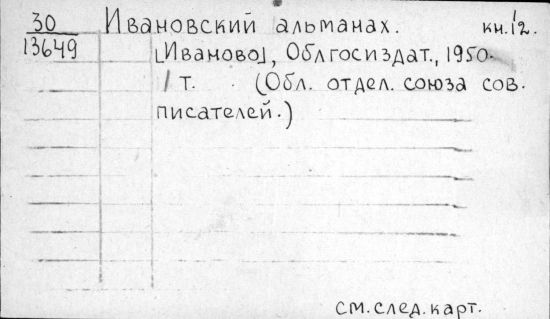 30 Ивановский альманах. кн. 12.
13649 [Иваново], Облгосиздат., 1950.
1 т. (Обл. отдел. союза сов.
писателей.)
см. след. карт.